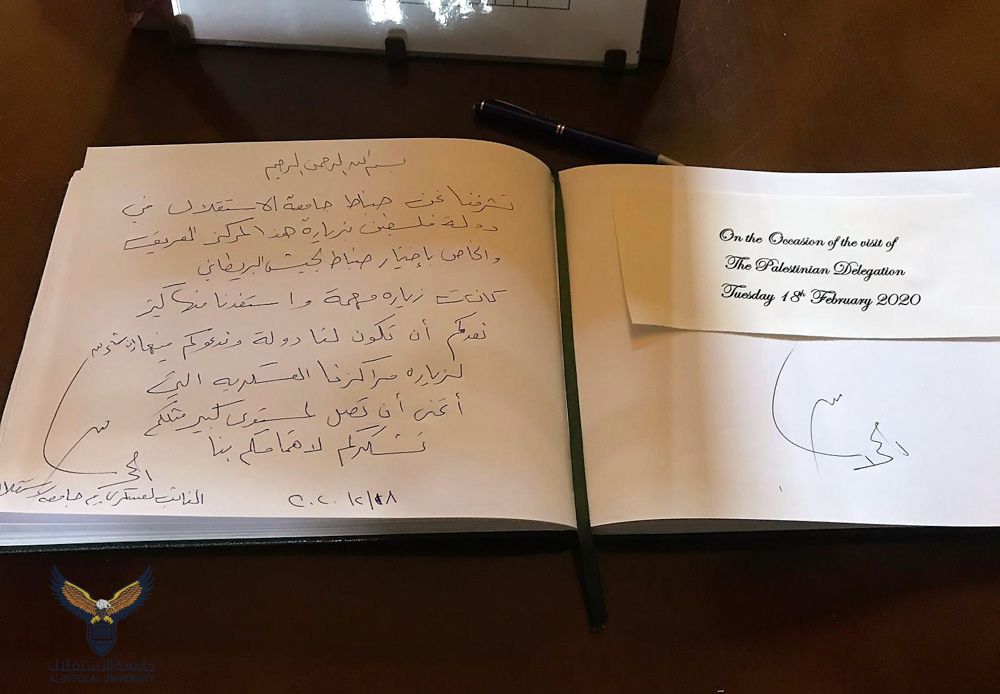 بسم الله الرحمن الرحيم
تشرفنا نحن ضباط جامعة الاستقلال في
دولة فلسطين بزيارة هذا المركز العريق
والخاص بإختيار ضباط الجيش البريطاني
كانت زيارة مهمة واستفدنا منها كثير
نعدكم أن تكون لنا دولة وندعوكم فيها
لزيارة مراكزنا العسكرية التي
أتمنى أن تصل لمستوى كبير مثلكم
نشكركم لاهتمامكم بنا
النائب العسكري جامعة الاستقلال
٢٠٢٠/٢/١٨
On the Occasion of the visit of
The Palestinian Delegation
Tuesday 18th February 2020
جامعة الاستقلال
AL-ISTIQLAL UNIVERSITY